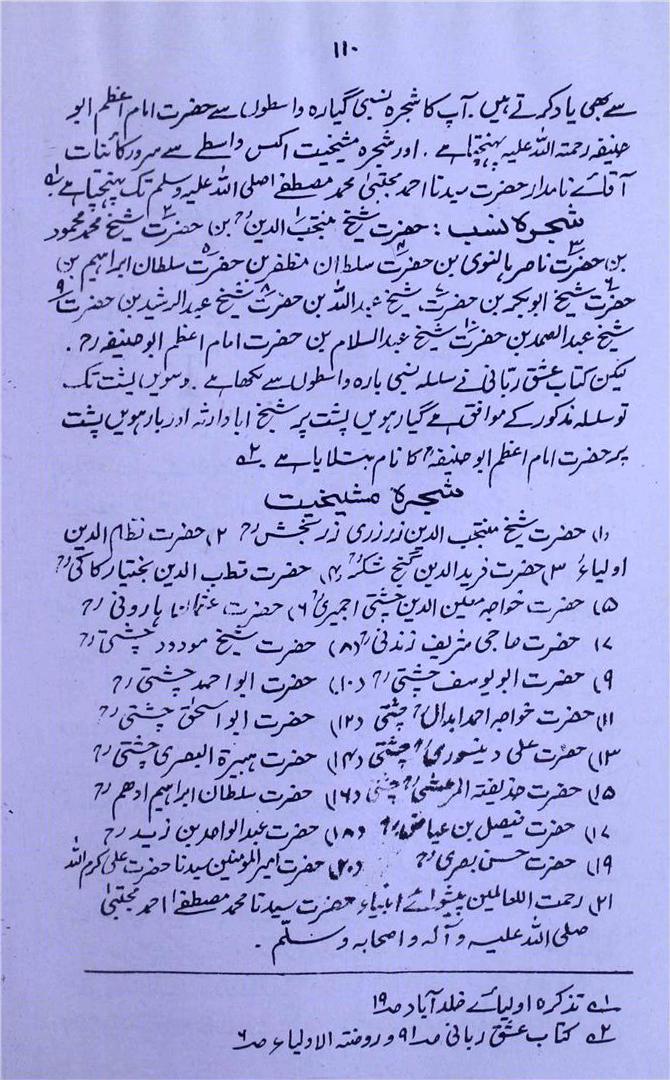 ۱۱۰
سے بھی یاد کرتے ہیں۔ آپ کا شجرہ نسبی گیارہ واسطوں سے حضرت امام اعظم ابو
حنیفہ رحمتہ اللہ علیہ پہنچتا ہے۔ اور شجرہ مشیخیت اکس واسطے سے سرور کائنات
آقائے نامدار حضرت سیدنا احمد مجتبیٰ محمد مصطفےٰ اصلی اللہ علیہ وسلم تک پہنچتا ہے ۱؎
شجرہ نسب : حضرت شیخ منتجب الدین ۱؎ رح بن حضرت ۲ شیخ محمد محمود
بن ۳ حضرت ناصر ہالنوی بن حضرت ۴ سلطان مظفر بن حضرت ۵ سلطان ابراہیم بن
حضرت ۶ شیخ ابوبکر بن حضرت ۷ شیخ عبداللہ بن حضرت ۸ شیخ عبدالرشید بن حضرت ۹
شیخ عبدالصمد بن حضرت ۱۰ شیخ عبدالسلام بن حضرت امام اعظم ابوحنیفہ رح۔
لیکن کتاب عشق ربانی نے سلسلہ نسبی بارہ واسطوں سے لکھا ہے۔ دسویں پشت تک
تو سلسلہ مذکور کے موافق ہے گیارہویں پشت پر شیخ ابا دارثہ ادر بارہویں پشت
پر حضرت امام اعظم ابوحنیفہ رح کا نام بتلایا ہے۔ ۲؎
شجرہ مشیخیت
(۱) حضرت شیخ منتجب الدین زرزری زر بخش رح (۲) حضرت نظام الدین
اولیاء رح (۳) حضرت فرید الدین گنج شکر رح (۴) حضرت قطب الدین بختیار کاکی رح
(۵) حضرت خواجہ معین الدین چشتی اجمیری رح (۶) حضرت عثمان ہارونی رح
(۷) حضرت حاجی شریف زندنی رح (۸) حضرت شیخ مودود چشتی رح
(۹) حضرت ابو یوسف چشتی رح (۱۰) حضرت ابو احمد چشتی رح
(۱۱) حضرت خواجہ احمد ابدال رح چشتی (۱۲) حضرت ابو اسحٰق چشتی رح
(۱۳) حضرت علی دینوری رح چشتی (۱۴) حضرت ہبیرۃ البصری چشتی رح
(۱۵) حضرت حذیفتہ المرعشی رح چشتی (۱۶) حضرت سلطان ابراہیم ادھم رح
(۱۷) حضرت فیصل بن عیاض رح (۱۸) حضرت عبدالواحد بن زید رح
(۱۹) حضرت حسن بصری رح (۲۰) حضرت امیر المؤمنین سیدنا حضرت علی کرم اللہ
(۲۱) رحمت اللعالمین پیشوائے انبیاء حضرت سیدنا محمد مصطفےٰ احمد مجتبیٰ
صلی اللہ علیہ و آلہ و اصحابہ و سلّم۔
۱؎ تذکرہ اولیائے خلد آباد صہ ۱۹
۲؎ کتاب عشق ربانی صہ ۹۱ و روضتہ الاولیاء صہ ۶